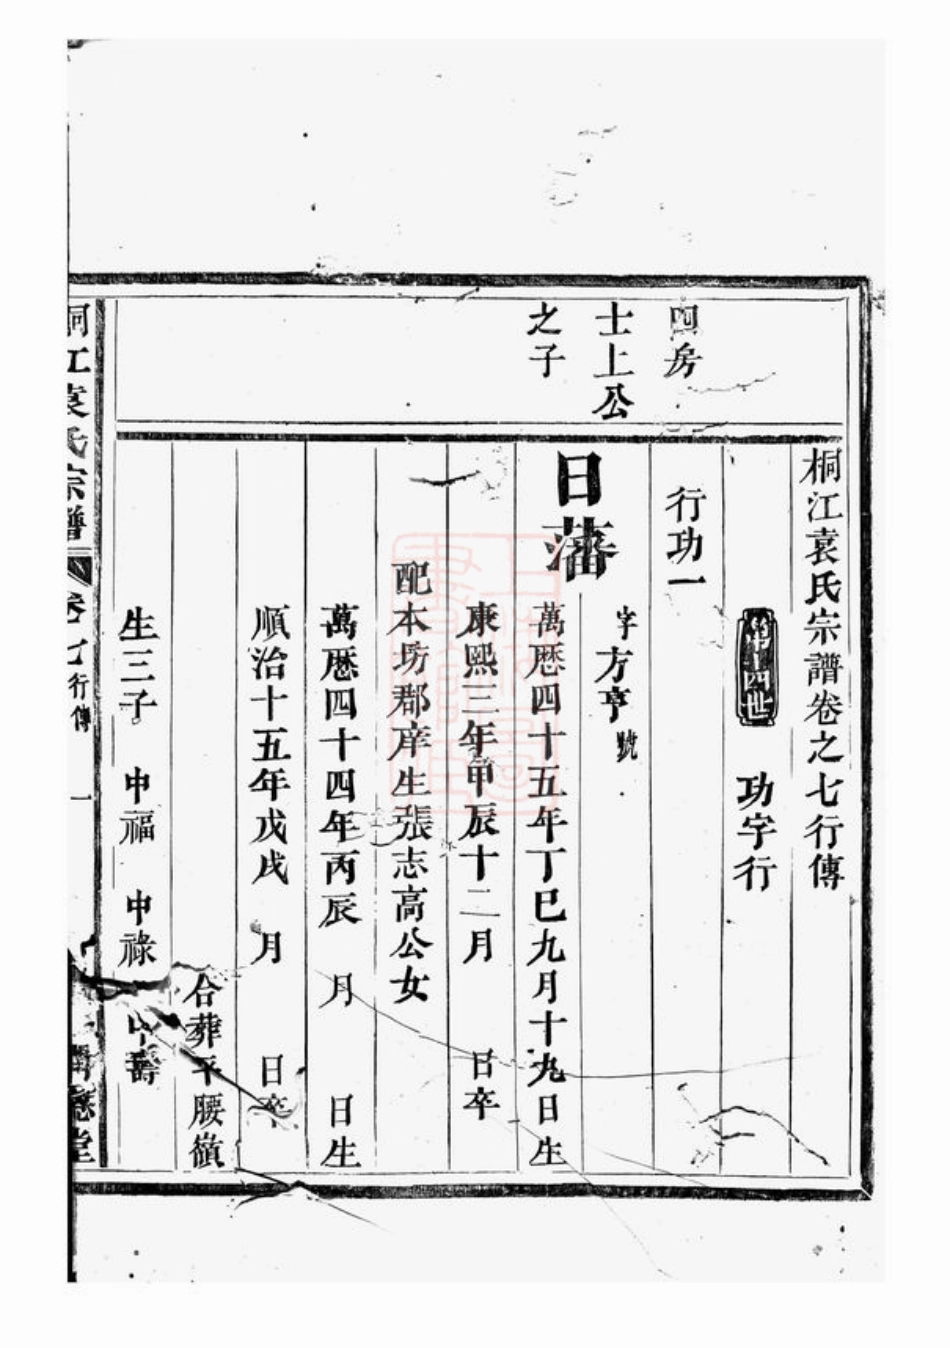 桐江袁氏宗譜卷之七行傳
第十四世 功字行
四房
士上公
之子
行功一
日藩
字方亨 號
萬厯四十五年丁巳九月十九日生
康熙三年甲辰十二月 日卒
配本坊郡庠生張志高公女
萬厯四十四年丙辰 月 日生
順治十五年戊戌 月 日卒
合葬平腰嶺
生三子 申福 申祿 申壽
桐江袁氏宗譜 卷七 行傳 一